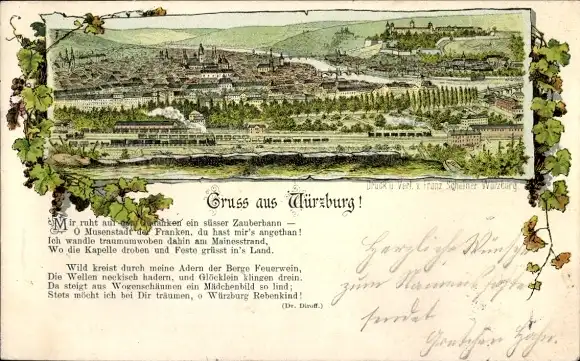 Druck u. Verl. v. Franz Scheiner Würzburg.
Gruss aus Würzburg!
Mir ruht auf den Gedanken ein süsser Zauberbann —
O Musenstadt der Franken, du hast mir's angethan!
Ich wandle traumumwoben dahin am Mainesstrand,
Wo die Kapelle droben und Feste grüsst in's Land.
Wild kreist durch meine Adern der Berge Feuerwein,
Die Wellen neckisch hadern, und Glöcklein klingen drein.
Da steigt aus Wogenschäumen ein Mädchenbild so lind;
Stets möcht ich bei Dir träumen, o Würzburg Rebenkind!
(Dr. Diroff.)
Herzliche Wünsche
zum Namensfeste
sendet
Gretchen Hahn.